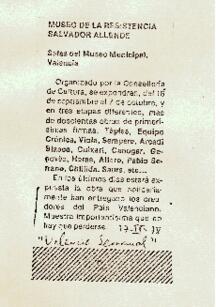 MUSEO DE LA RESISTENCIA
SALVADOR ALLENDE
Salas del Museo Municipal.
Valencia
Organizado por la Conselleria
de Cultura, se expondran, del 16
de septiembre al 7 de outubro, y en
tres etapas diferentes, más
de doscientas obras de primeri-
simas firmas. Tàpies, Equipo
Crónica, Viola, Sempere, Arcadi
Blasco, Cuixart, Canogar, Ge-
novés, Heras, Alfaro, Pablo Se-
rrano, Chillida, Saura, etc...
En los últimos días estará ex-
puesta la obra que
mente han entregado los crea-
dores del País Valenciano.
Muestra importantísima que no
hay que perderse. 17-IX-78
"Valencia Semanal"